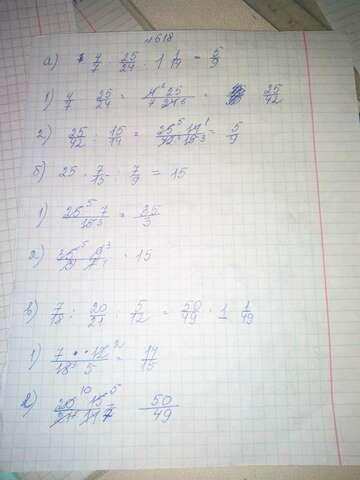 №618
а) 4/7 · 25/24 : 1 1/14 = 5/9
1) 4/7 · 25/24 = 4·25/7·24 6 = 25/42
2) 25/42 : 15/14 = 25 5 · 14 1/42 · 15 3 = 5/9
б) 25 · 7/15 : 7/9 = 15
1) 25 5 · 7/15 3 = 35/3
2) 35 5 · 9 3/3 · 7 1 = 15
в) 7/18 : 20/21 : 5/12 = 50/49 = 1 1/49
1) 7 · 12 2/18 3 · 5 = 14/15
2) 20 10 · 15 5/21 7 · 14 7 = 50/49